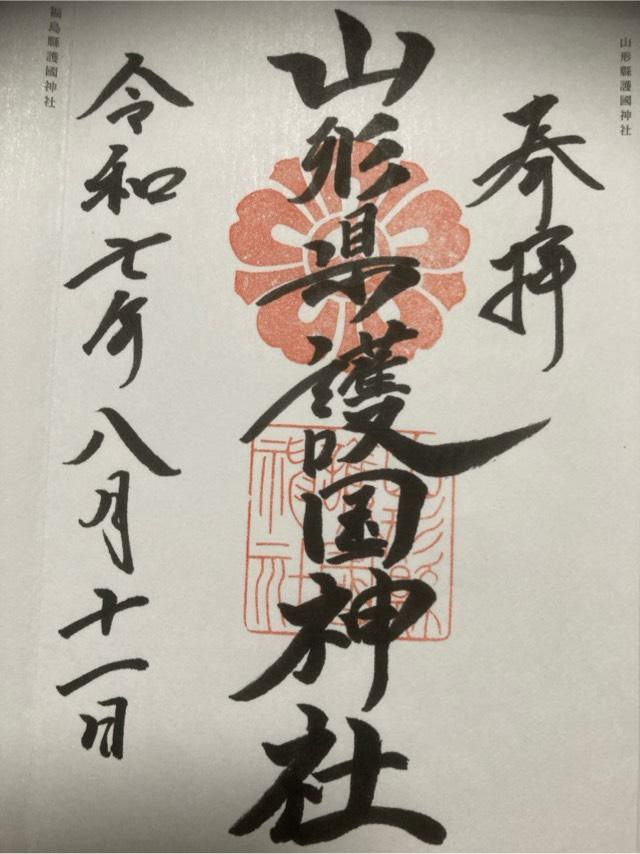 山形縣護國神社
奉拝
山形県護国神社
令和七年八月十一日
福島縣護國神社